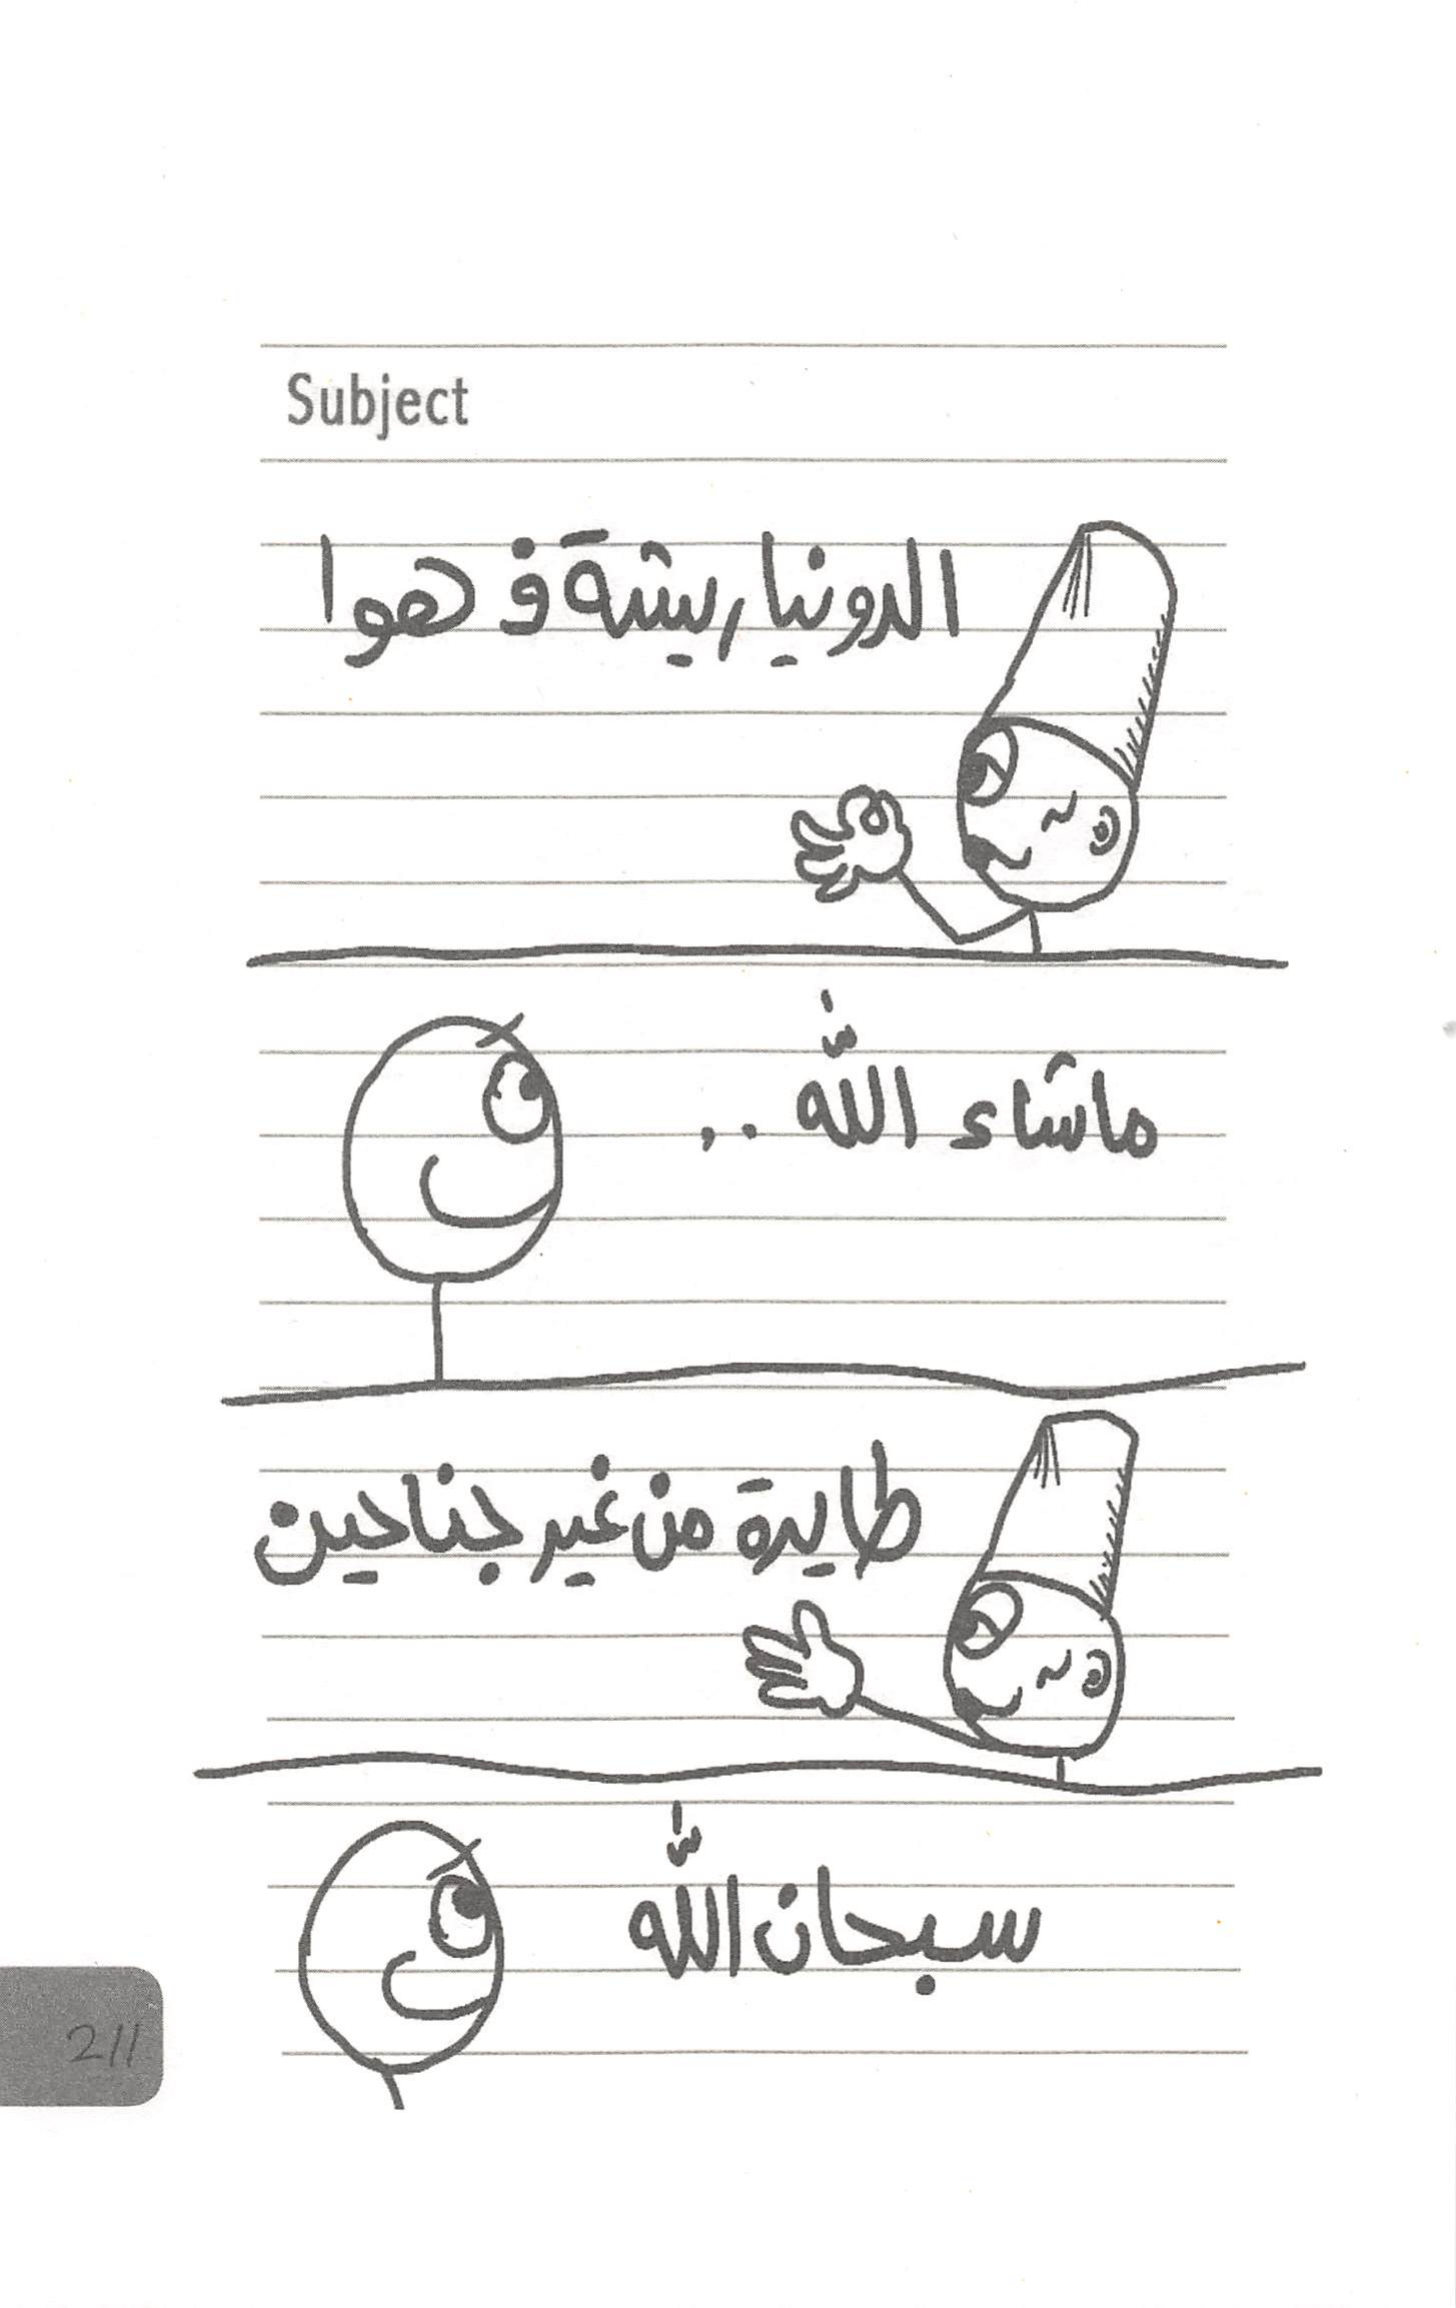 Subject
الدونيا ريشة ف هوا
ماشاء اللّٰه ..
طايرة من غير جناحين
سبحان اللّٰه
211